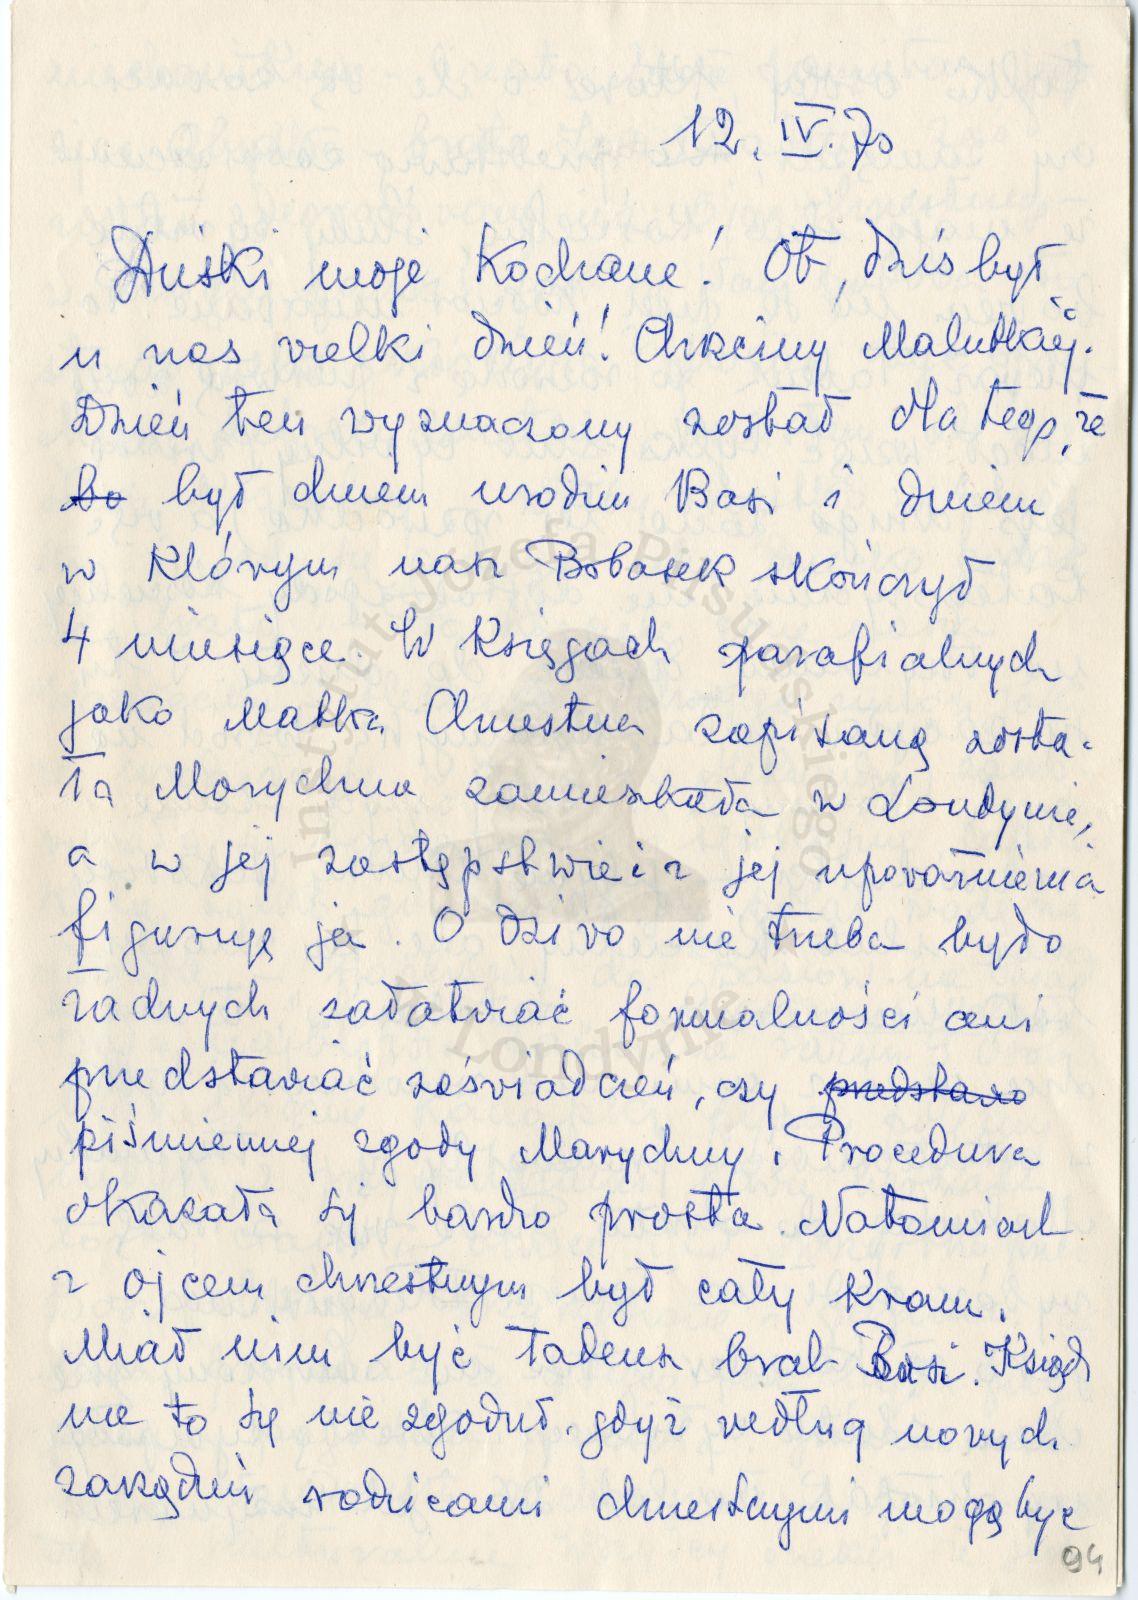 12. IV. 70
Diuśki moje Kochane! Ot, dziś był
u nas wielki dzień! Chrzciny Malutkiej.
Dzień ten wyznaczony został dla tego, że
bo był dniem urodzin Basi i dniem
w którym nasz Bobasek skończył
4 miesiące. W Księgach parafialnych
jako Matka Chrzestna zapisaną zosta-
ła Marychna zamieszkała w Londynie,
a w jej zastępstwie i z jej upoważnienia
figuruję ja. O dziwo nie trzeba było
żadnych załatwiać formalności ani
przedstawiać zaświadczeń, czy przedstawo
piśmiennej zgody Marychny. Procedura
okazała się bardzo prosta. Natomiast
z ojcem chrzestnym był cały kram.
Miał nim być Tadeusz brat Basi. Ksiądz
na to się nie zgodził, gdyż według nowych
zarządzeń rodzicami chrzestnymi mogą być
94
Instytut Józefa Piłsudskiego
w Londynie